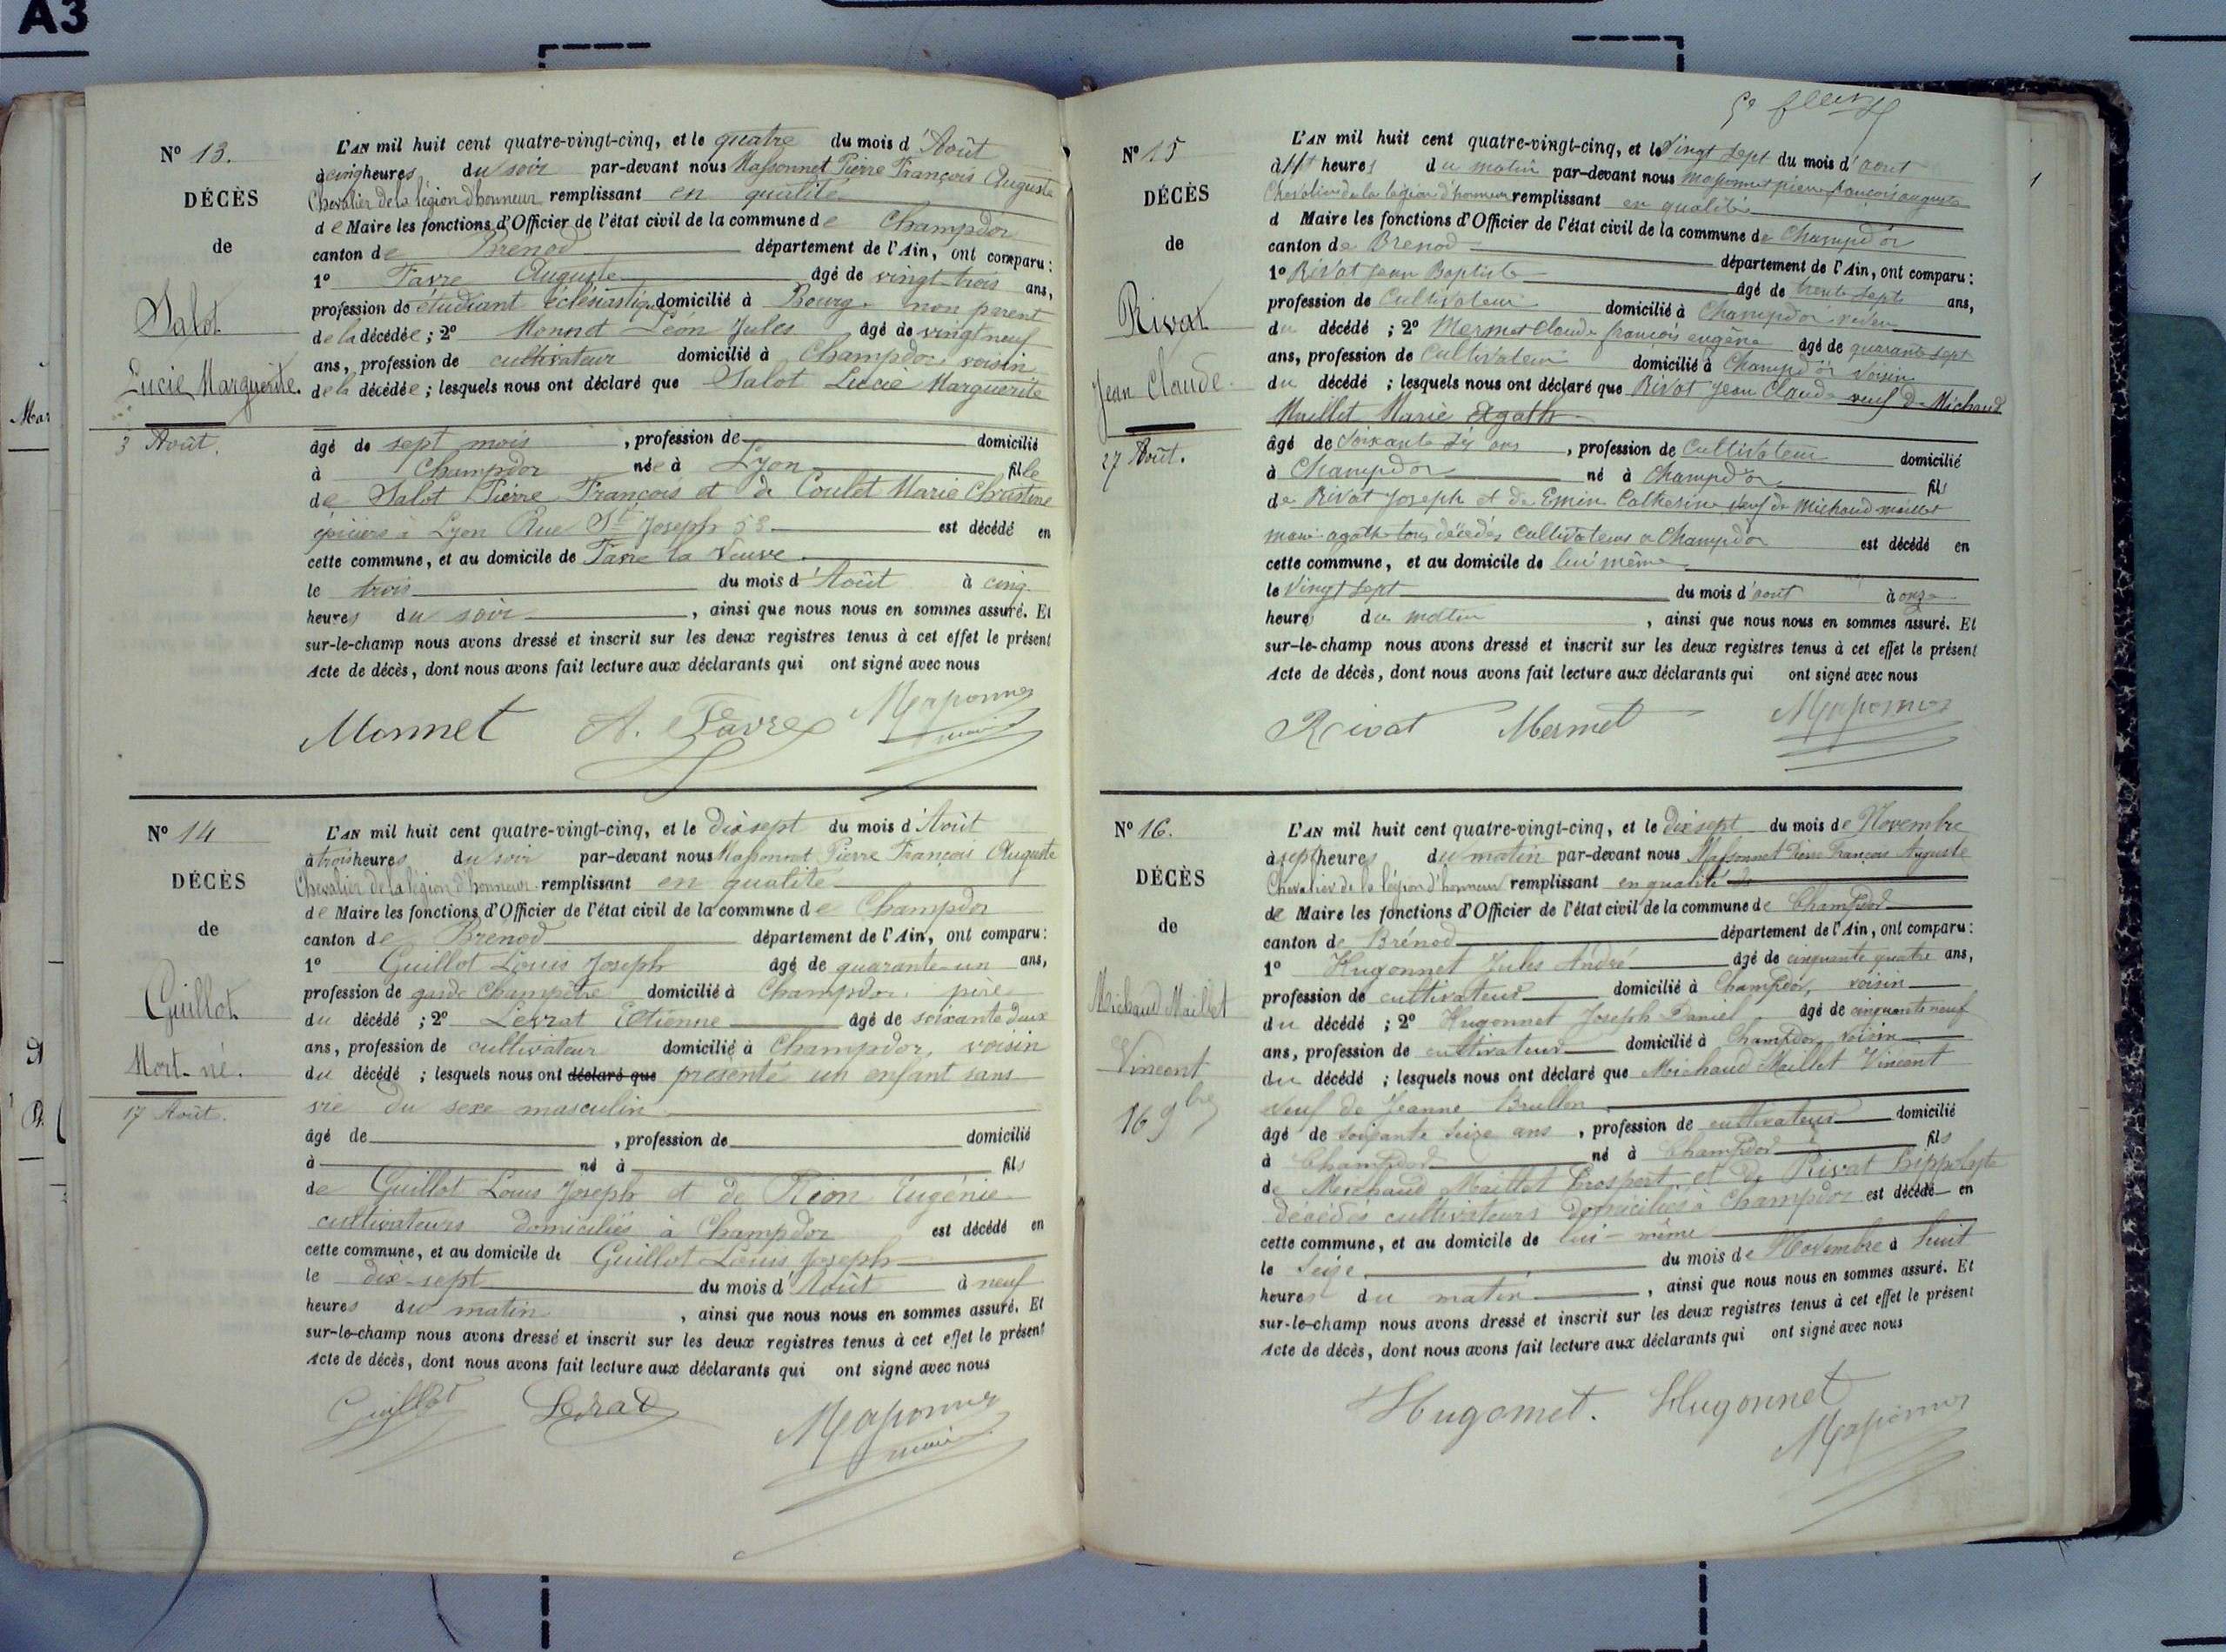 A3
Nº 13.
DÉCÈS
de
Salot
Lucie Marguerite.
3 Août.
L'AN mil huit cent quatre-vingt-cinq, et le quatre du mois d'Août
à cinq heures du soir par-devant nous Massonnet Pierre François Auguste
Chevalier de la légion d'honneur remplissant en qualité
de Maire les fonctions d'Officier de l'état civil de la commune de Champdor
canton de Brenod département de l'Ain, ont comparu :
1º Favre Auguste âgé de vingt-trois ans,
profession de étudiant éclésiastique domicilié à Bourg. non parent
de la décédée ; 2º Monnet Léon Jules âgé de vingt neuf
ans, profession de cultivateur domicilié à Champdor, voisin
de la décédée ; lesquels nous ont déclaré que Salot Lucie Marguerite
âgé de sept mois , profession de domicilié
à Champdor née à Lyon fille
de Salot Pierre François et de Coulet Marie Christine
épiciers à Lyon Rue St Joseph 53 est décédé en
cette commune, et au domicile de Favre la Veuve
le trois du mois d'Août à cinq
heures du soir , ainsi que nous nous en sommes assuré. Et
sur-le-champ nous avons dressé et inscrit sur les deux registres tenus à cet effet le présent
Acte de décès, dont nous avons fait lecture aux déclarants qui ont signé avec nous
Monnet A. Favre Massonnet
maire
Nº 14
DÉCÈS
de
Guillot
Mort-né.
17 Août.
L'AN mil huit cent quatre-vingt-cinq, et le dix sept du mois d'Août
à trois heures du soir par-devant nous Massonnet Pierre François Auguste
Chevalier de la légion d'honneur remplissant en qualité
de Maire les fonctions d'Officier de l'état civil de la commune de Champdor
canton de Brenod département de l'Ain, ont comparu :
1º Guillot Louis Joseph âgé de quarante-un ans,
profession de garde champêtre domicilié à Champdor, père
du décédé ; 2º Levrat Etienne âgé de soixante deux
ans, profession de cultivateur domicilié à Champdor, voisin
du décédé ; lesquels nous ont déclaré que présenté un enfant sans
vie du sexe masculin
âgé de , profession de domicilié
à né à fils
de Guillot Louis Joseph et de Rion Eugénie
cultivateurs domiciliés à Champdor est décédé en
cette commune, et au domicile de Guillot Louis Joseph
le dix-sept du mois d'Août à neuf
heures du matin , ainsi que nous nous en sommes assuré. Et
sur-le-champ nous avons dressé et inscrit sur les deux registres tenus à cet effet le présent
Acte de décès, dont nous avons fait lecture aux déclarants qui ont signé avec nous
Guillot Levrat Massonnet
maire
Nº 15
DÉCÈS
de
Rivat
Jean Claude.
27 Août.
L'AN mil huit cent quatre-vingt-cinq, et le Vingt sept du mois d'aout
à heures du matin par-devant nous massonnet pierre françois auguste
Chevalier de la légion d'honneur remplissant en qualité
d Maire les fonctions d'Officier de l'état civil de la commune de Champd'or
canton de Brenod département de l'Ain, ont comparu :
1º Rivat Jean Baptiste âgé de trente sept ans,
profession de Cultivateur domicilié à Champd'or
du décédé ; 2º Mermet Claude françois eugène âgé de quarante sept
ans, profession de Cultivateur domicilié à Champd'or Voisin
du décédé ; lesquels nous ont déclaré que Rivat Jean Claude veuf de Michaud
Maillet Marie Agathe
âgé de soixante dix ans , profession de Cultivateur domicilié
à Champdor né à Champd'or fils
de Rivat Joseph et de Emin Catherine veuf de Michaud maillet
marie agathe tous décédés Cultivateurs a Champdor est décédé en
cette commune, et au domicile de lui même
le Vingt sept du mois d'aout à onze
heures du matin , ainsi que nous nous en sommes assuré. Et
sur-le-champ nous avons dressé et inscrit sur les deux registres tenus à cet effet le présent
Acte de décès, dont nous avons fait lecture aux déclarants qui ont signé avec nous
Rivat Mermet Massonnet
Nº 16.
DÉCÈS
de
Michaud Maillet
Vincent
16 9bre
L'AN mil huit cent quatre-vingt-cinq, et le Dix sept du mois de Novembre
à sept heures du matin par-devant nous Massonnet Pierre François Auguste
Chevalier de la légion d'honneur remplissant en qualité de
de Maire les fonctions d'Officier de l'état civil de la commune de Champdor
canton de Brénod département de l'Ain, ont comparu :
1º Hugonnet Jules André âgé de cinquante quatre ans,
profession de cultivateur domicilié à Champdor, voisin
du décédé ; 2º Hugonnet Joseph Daniel âgé de cinquante neuf
ans, profession de cultivateur domicilié à Champdor, voisin
du décédé ; lesquels nous ont déclaré que Michaud Maillet Vincent
veuf de Jeanne Brullon
âgé de soixante seize ans , profession de cultivateur domicilié
à Champdor né à Champdor fils
de Michaud Maillet Prospert et de Rivat hippolyte
décédés cultivateurs domiciliés à Champdor est décédé en
cette commune, et au domicile de lui-même
le Seize du mois de Novembre à huit
heures du matin , ainsi que nous nous en sommes assuré. Et
sur-le-champ nous avons dressé et inscrit sur les deux registres tenus à cet effet le présent
Acte de décès, dont nous avons fait lecture aux déclarants qui ont signé avec nous
Hugonnet. Hugonnet
Massonnet